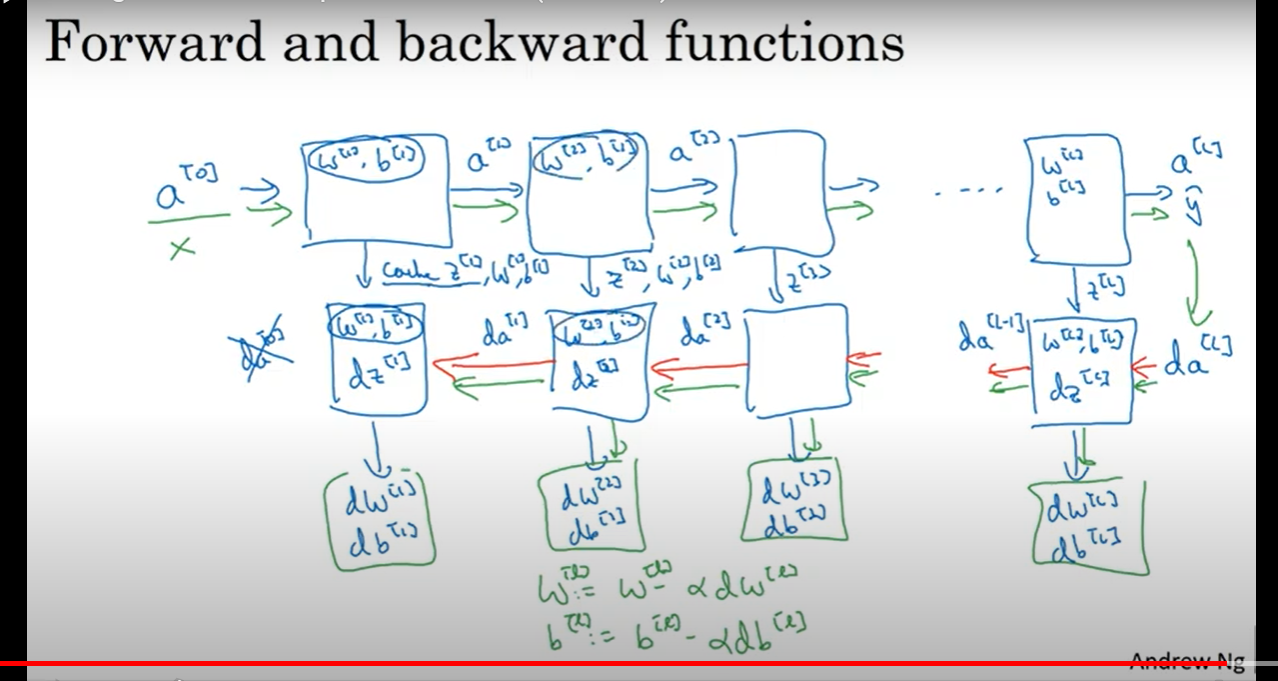 Forward and backward functions
a^[0] w^[1], b^[1] a^[1] w^[2], b^[2] a^[2] .... w^[L] b^[L] a^[L] ŷ
x
cache z^[1], w^[1], b^[1] z^[2], w^[2], b^[2] z^[3] z^[L]
da^[0] w^[1], b^[1] da^[1] w^[2], b^[2] da^[2] da^[L-1] w^[L], b^[L] da^[L]
dz^[1] dz^[2] dz^[L]
dw^[1] dw^[2] dw^[3] dw^[L]
db^[1] db^[2] db^[3] db^[L]
w^[l] := w^[l] - αdw^[l]
b^[l] := b^[l] - αdb^[l]
Andrew Ng